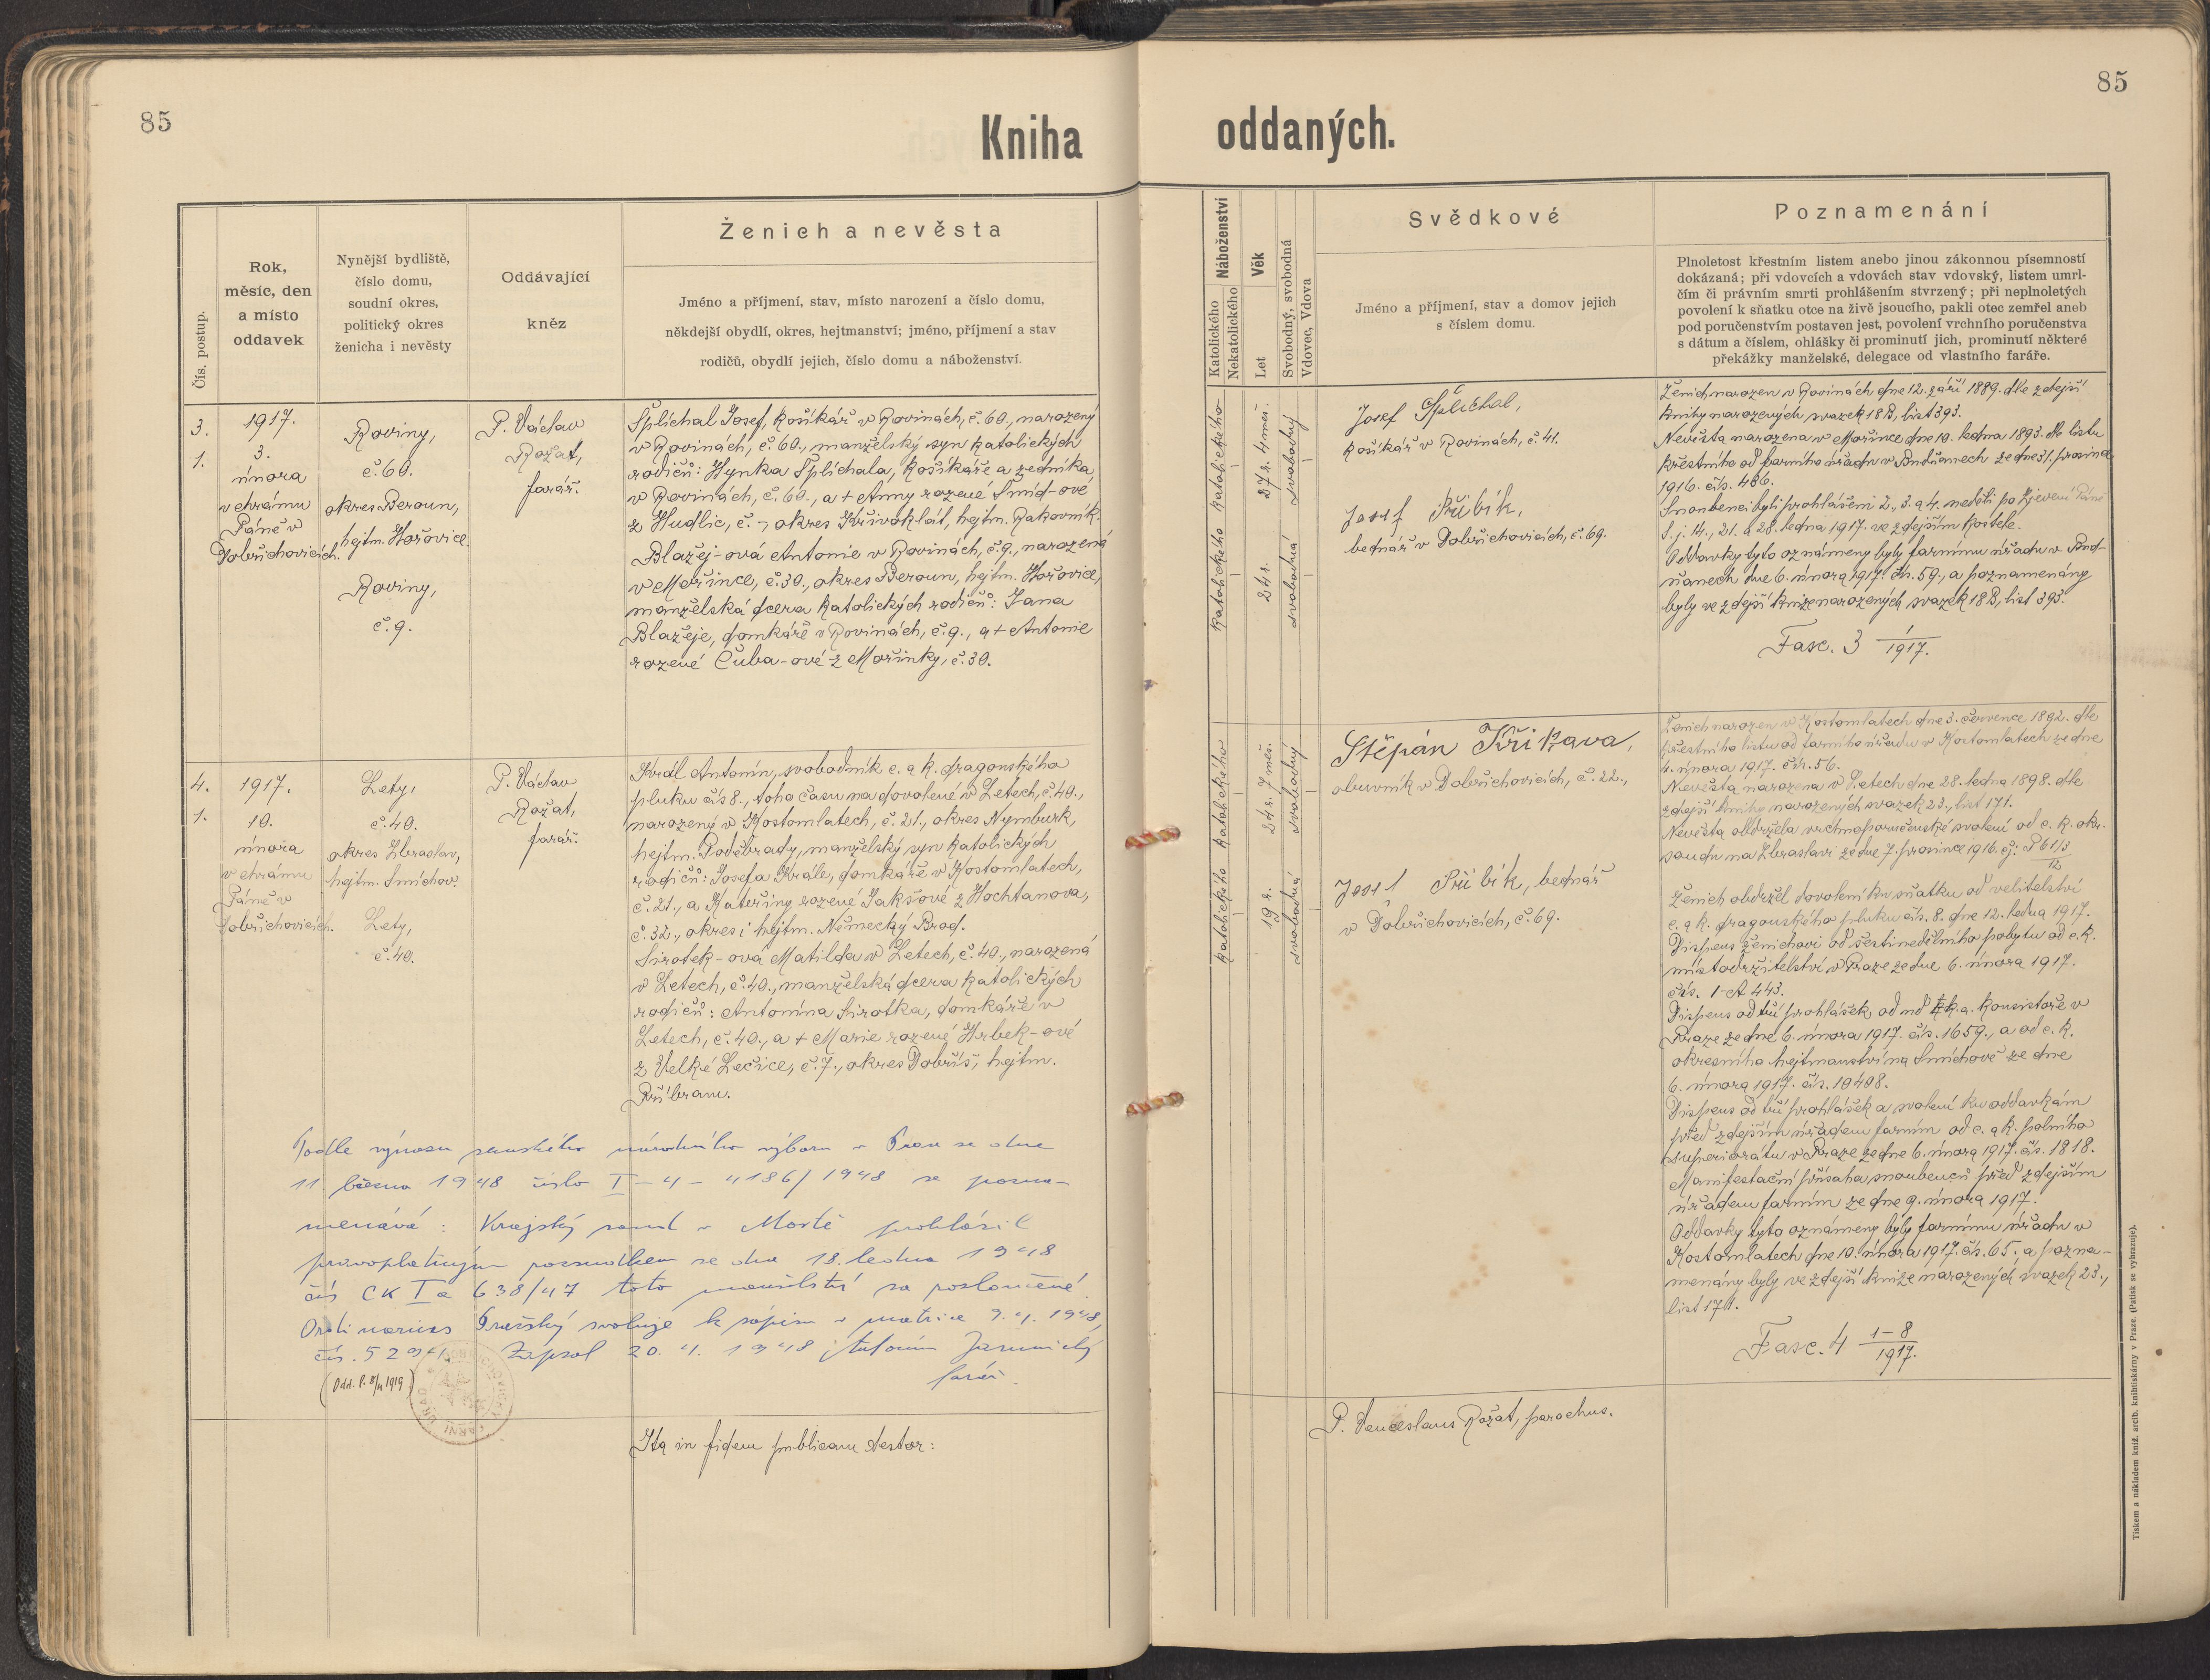 85
Kniha
Čís. postup.
Rok,
měsíc, den
a místo
oddavek
Nynější bydliště,
číslo domu,
soudní okres,
politický okres
ženicha i nevěsty
Oddávající
kněz
Ženich a nevěsta
Jméno a příjmení, stav, místo narození a číslo domu,
někdejší obydlí, okres, hejtmanství; jméno, příjmení a stav
rodičů, obydlí jejich, číslo domu a náboženství.
3.
1.
1917.
3.
února
v chrámu
Páně v
Dobřichovicích.
Roviny,
č. 60.
okres Beroun,
hejtm. Hořovice.
Roviny,
č. 9.
P. Václav
Rožat,
farář.
Šplíchal Josef, košíkář v Rovinách, č. 60., narozený
v Rovinách, č. 60., manželský syn katolických
rodičů: Hynka Šplíchala, košíkáře a zedníka
v Rovinách, č. 60., a + Anny rozené Šmíd-ové
z Hudlic, č. -, okres Křivoklát, hejtm. Rakovník.
Blažej-ová Antonie v Rovinách, č. 9., narozená
v Mořince, č. 30., okres Beroun, hejtm. Hořovice,
manželská dcera katolických rodičů: Jana
Blažeje, domkáře v Rovinách, č. 9., a + Antonie
rozené Čuba-ové z Mořinky, č. 30.
4.
1.
1917.
10.
února
v chrámu
Páně v
Dobřichovicích.
Lety,
č. 40.
okres Zbraslav,
hejtm. Smíchov.
Lety,
č. 40.
P. Václav
Rožat,
farář.
Král Antonín, svobodník c. a k. dragonského
pluku čís 8., toho času na dovolené v Letech, č. 40.,
narozený v Kostomlatech, č. 21., okres Nymburk,
hejtm. Poděbrady, manželský syn katolických
rodičů: Josefa Krále, domkáře v Kostomlatech,
č. 21., a Kateřiny rozené Jakšové z Hochtanova,
č. 32., okres i hejtm. Německý Brod.
Sirotek-ová Matilda v Letech, č. 40., narozená
v Letech, č. 40., manželská dcera katolických
rodičů: Antonína Sirotka, domkáře v
Letech, č. 40., a + Marie rozené Hrbek-ové
z Velké Lečice, č. 7., okres Dobříš, hejtm.
Příbram.
Podle výnosu zemského národního výboru v Praze ze dne
11 března 1948 číslo I-4-4186/1948 se pozna-
menává: Krajský soud v Mostě prohlásil
pravoplatným rozsudkem ze dne 13. ledna 1948
čís CK I a 638/47 toto manželství za rozloučené.
Ordinariat Pražský svoluje k zápisu v matrice 9. 4. 1948,
čís. 5294. Zapsal 20. 4. 1948 Antonín
farář.
(Odd. l. 8/ 1919)
Ita in fidem publicam testor:
85
oddaných.
Náboženství
Katolického
Nekatolického
Věk
Let
Svobodný, svobodná
Vdovec, Vdova
Svědkové
Jméno a příjmení, stav a domov jejich
s číslem domu.
Poznamenání
Plnoletost křestním listem anebo jinou zákonnou písemností
dokázaná; při vdovcích a vdovách stav vdovský, listem umrl-
čím či právním smrti prohlášením stvrzený; při neplnoletých
povolení k sňatku otce na živě jsoucího, pakli otec zemřel aneb
pod poručenstvím postaven jest, povolení vrchního poručenstva
s dátum a číslem, ohlášky či prominutí jich, prominutí některé
překážky manželské, delegace od vlastního faráře.
katolického
27 r. 4 měs.
svobodný
katolického
24 r.
svobodná
Josef Šplíchal,
košíkář v Rovinách, č. 41.
Josef Přibík,
bednář v Dobřichovicích, č. 69.
Ženich narozen v Rovinách dne 12. září 1889. dle zdejší
knihy narozených svazek 18 B, list 393.
Nevěsta narozena v Mořince dne 10. ledna 1893. dle listu
křestního od farního úřadu v Budňanech ze dne 31. prosince
1916. čís. 486.
Snoubenci byli prohlášeni 2., 3. a 4. neděli po Zjevení Páně
t. j. 14., 21. a 28. ledna 1917. ve zdejším kostele.
Oddavky tyto oznámeny byly farnímu úřadu v Bud-
ňanech dne 6. února 1917. čís. 59., a poznamenány
byly ve zdejší knize narozených svazek 18 B, list 393.
Fasc. 3 1/1917.
katolického
24 r. 7 měs.
svobodný
katolického
19 r.
svobodná
Štěpán Křikava,
obuvník v Dobřichovicích, č. 22.,
Josef Přibík, bednář
v Dobřichovicích, č. 69.
Ženich narozen v Kostomlatech dne 3. července 1892. dle
křestního listu od farního úřadu v Kostomlatech ze dne
4. února 1917. čís. 56.
Nevěsta narozena v Letech dne 28. ledna 1898. dle
zdejší knihy narozených svazek 23., list 171.
Nevěsta obdržela vrchnoporučenské svolení od c. k. okr.
soudu na Zbraslavi ze dne 7. prosince 1916. čj: P 61/3
12
Ženich obdržel dovolení ku sňatku od velitelství
c. a k. dragonského pluku čís. 8. dne 12. ledna 1917.
Dispens ženichovi od šestinedělního pobytu od c. k.
místodržitelství v Praze ze dne 6. února 1917.
čís. 1-A 443.
Dispens od tří prohlášek od nd k. a. konsistoře v
Praze ze dne 6. února 1917. čís. 1659., a od c. k.
okresního hejtmanství na Smíchově ze dne
6. února 1917. čís. 10408.
Dispens od tří prohlášek a svolení ku oddavkám
před zdejším úřadem farním od c. a k. polního
superiorátu v Praze ze dne 6. února 1917. čís. 1818.
Manifestační přísaha snoubenců před zdejším
úřadem farním ze dne 9. února 1917.
Oddavky tyto oznámeny byly farnímu úřadu v
Kostomlatech dne 10. února 1917. čís. 65. a pozna-
menány byly ve zdejší knize narozených svazek 23.,
list 171.
Fasc. 4 1-8/1917.
P. Venceslaus Rožat, parochus.
Tiskem a nákladem kníž. arcib. knihtiskárny v Praze. (Patisk se vyhrazuje).